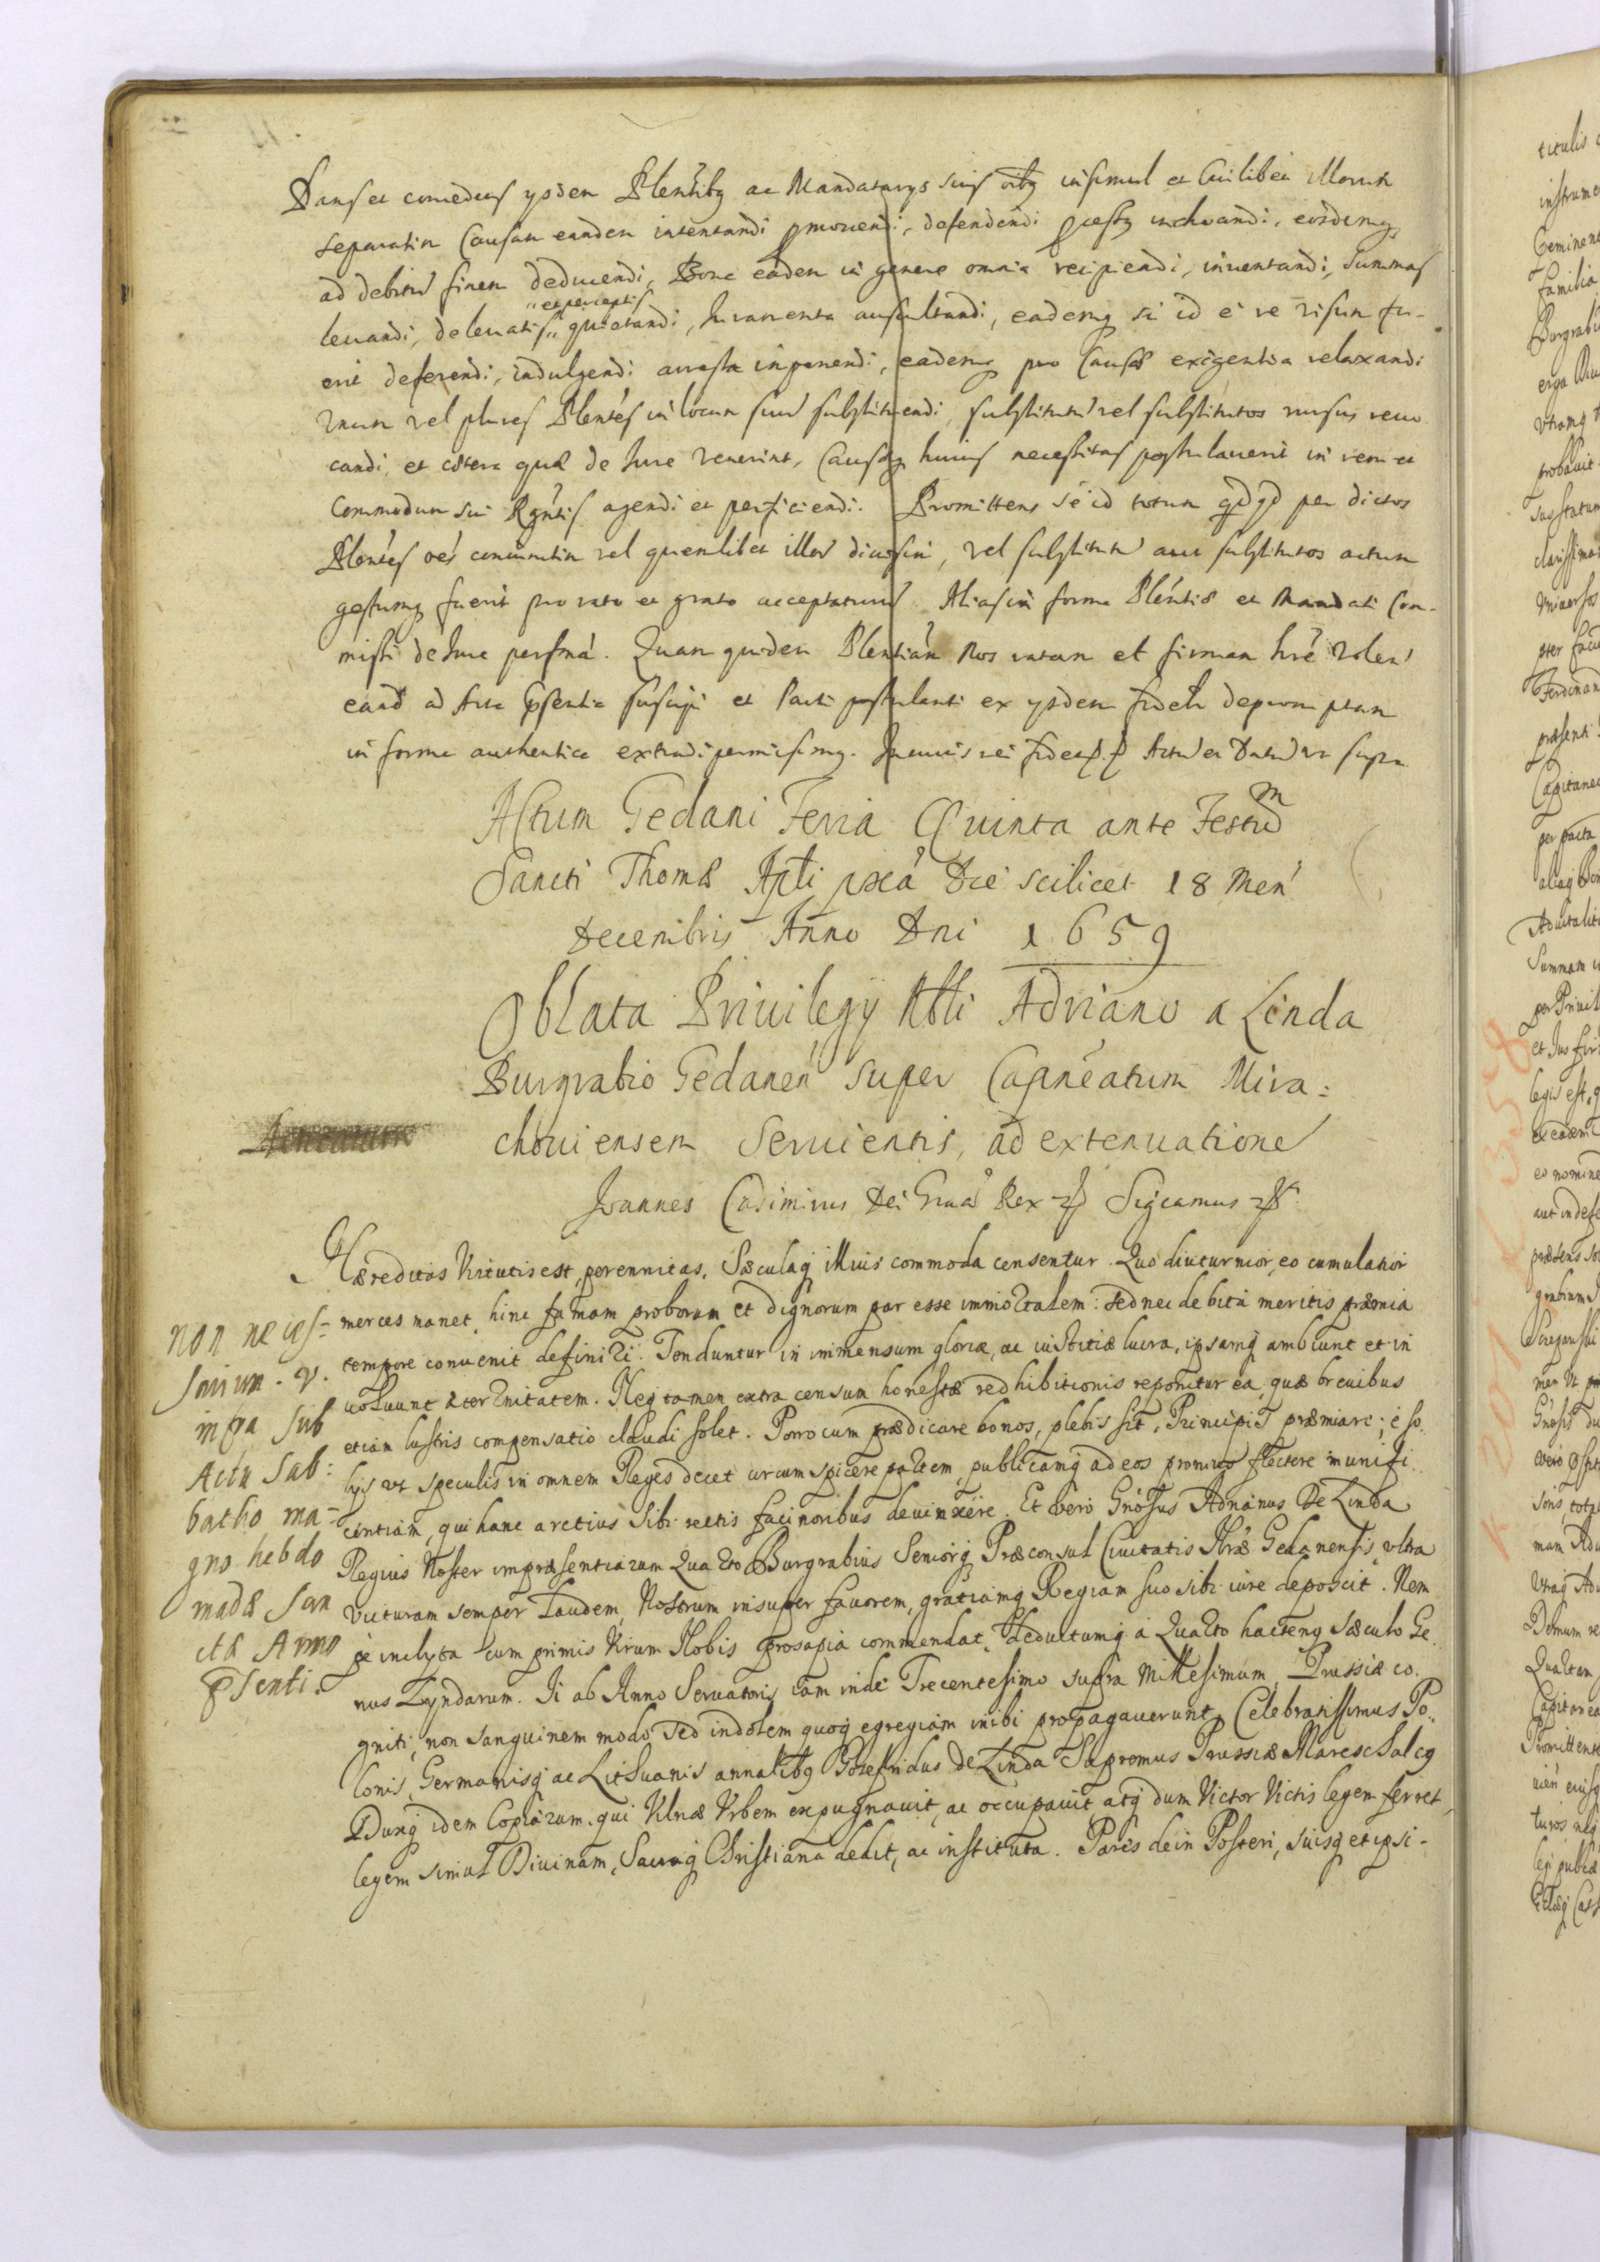 Dans et concedens ysdem Plentibq ac Mandatarys suis oibq insimul et Cuilibet illorum
separatim Causam eandem intentandi pmouendi, defendendi pcessq inchoandi, eosdemq
ad debitu finem deducendi, Bona eadem in genere omnia recipiendi, inuentandi, Summas
leuandi, de leuatis et perceptis quietandi, Juramenta auscultandi, eademq si id e re visum fu-
erit deferendi, indulgendi arresta imponendi, eademq pro Causæ exigentia relaxandi
vnum vel plures Plentes in locum suu substituendi, substitutu vel substitutos rursus reuo
candi, et cætera quæ de Jure venerint, Causæq huius necessitas postulauerit in rem et
commodum sui Pgntis agendi et perficiendi. Promittens se id totum qdqd per dictos
Plentes oes coniunctim vel quemlibet illor diuisim, vel substitutu aut substitutos actum
gestumq fuerit pro rato et grato accepturum. Alias in forma Plentiæ et Mandati Com-
missi de Jure perfma. Quam quidem Plentiam Nos ratam et firmam hre volen
eand ad Acta psentia suscipi et Parti postulanti ex ysdem fideli depromptam
in forma authentica extradi permisimq. In cuius rei fidem Actu et Datu vt supra
Actum Gedani Feria Quinta ante Festum
Sancti Thomæ Apli pxa Die scilicet 18 Men
Decembris Anno Dni 1659
Oblata Priuilegy Nbli Adriano a Linda
Burgrabio Gedanen super Capneatum Mira=
chouiensem Seruientis, ad extenuatione
Joannes Casimirus Dei Gra Rex Sigcamus
Hæreditas Virtutis est, perennitas, Sæculaq illius commoda censentur. Quo diuturnior, eo cumulatior
merces manet, hinc famam proborum et dignorum par esse immortalem: sed nec debita meritis præmia
tempore conuenit definiri. Tenduntur in immensum gloriæ, ac iustitiæ lucra, ipsamq ambiunt et in
uoluunt æternitatem. Neq tamen extra censum honestæ redhibitionis reponitur ea, quæ breuibus
etiam lustris compensatio claudi solet. Porro cum prædicare bonos, plebis sit, Principis præmiare; e so
lijs vt speculis in omnem Reges decet circumspicere partem, publicamq ad eos pronius flectere munifi
centiam, qui hanc arctius Sibi rectis facinoribus deuinxere. Et vero Gnosus Adrianus De Linda
Regius Noster impræsentiarum Quarto Burgrabius Seniorq Præconsul Ciuitatis Nræ Gedanensis, vltra
victuram semper Laudem, Nostrum insuper fauorem, gratiamq Regiam suo sibi iure deposcit. Nem
pe inclyta cum primis Virum Nobis prosapia commendat, deductumq a Quarto hactenq Sæculo Ge
nus Lyndarum. Ii ab Anno Seruatoris iam inde Trecentesimo supra Millesimum, Prussiæ co
gniti, non sanguinem modo sed indolem quoq egregiam inibi propagauerunt. Celebratissimus Po
lonis, Germanisq ac Lithuanis annalibq Gotefridus de Linda Supremus Prussiæ Marescalcq
Duxq idem Copiarum, qui Vilnæ Vrbem expugnauit, ac occupauit, atq dum Victor Victis legem ferret
legem simul Diuinam, Sacraq Christiana dedit, ac instituta. Pares dein Posteri, suisq et ipsi-
non neces=
sarium. v.
infra sub
Actu Sab=
batho ma=
gno hebdo
madæ San
ctæ Anno
psenti.
titulis
instrume
familia
Burgrabi
probauit
clarissima
vniuersos
Ferdinan
præsenti
Capitanea
per pacta
Summam
per Priuil
et Jus
legis est
eo nomine
præsens
man Adu
Vtraq Adu
Domum
Promittente
turos
358